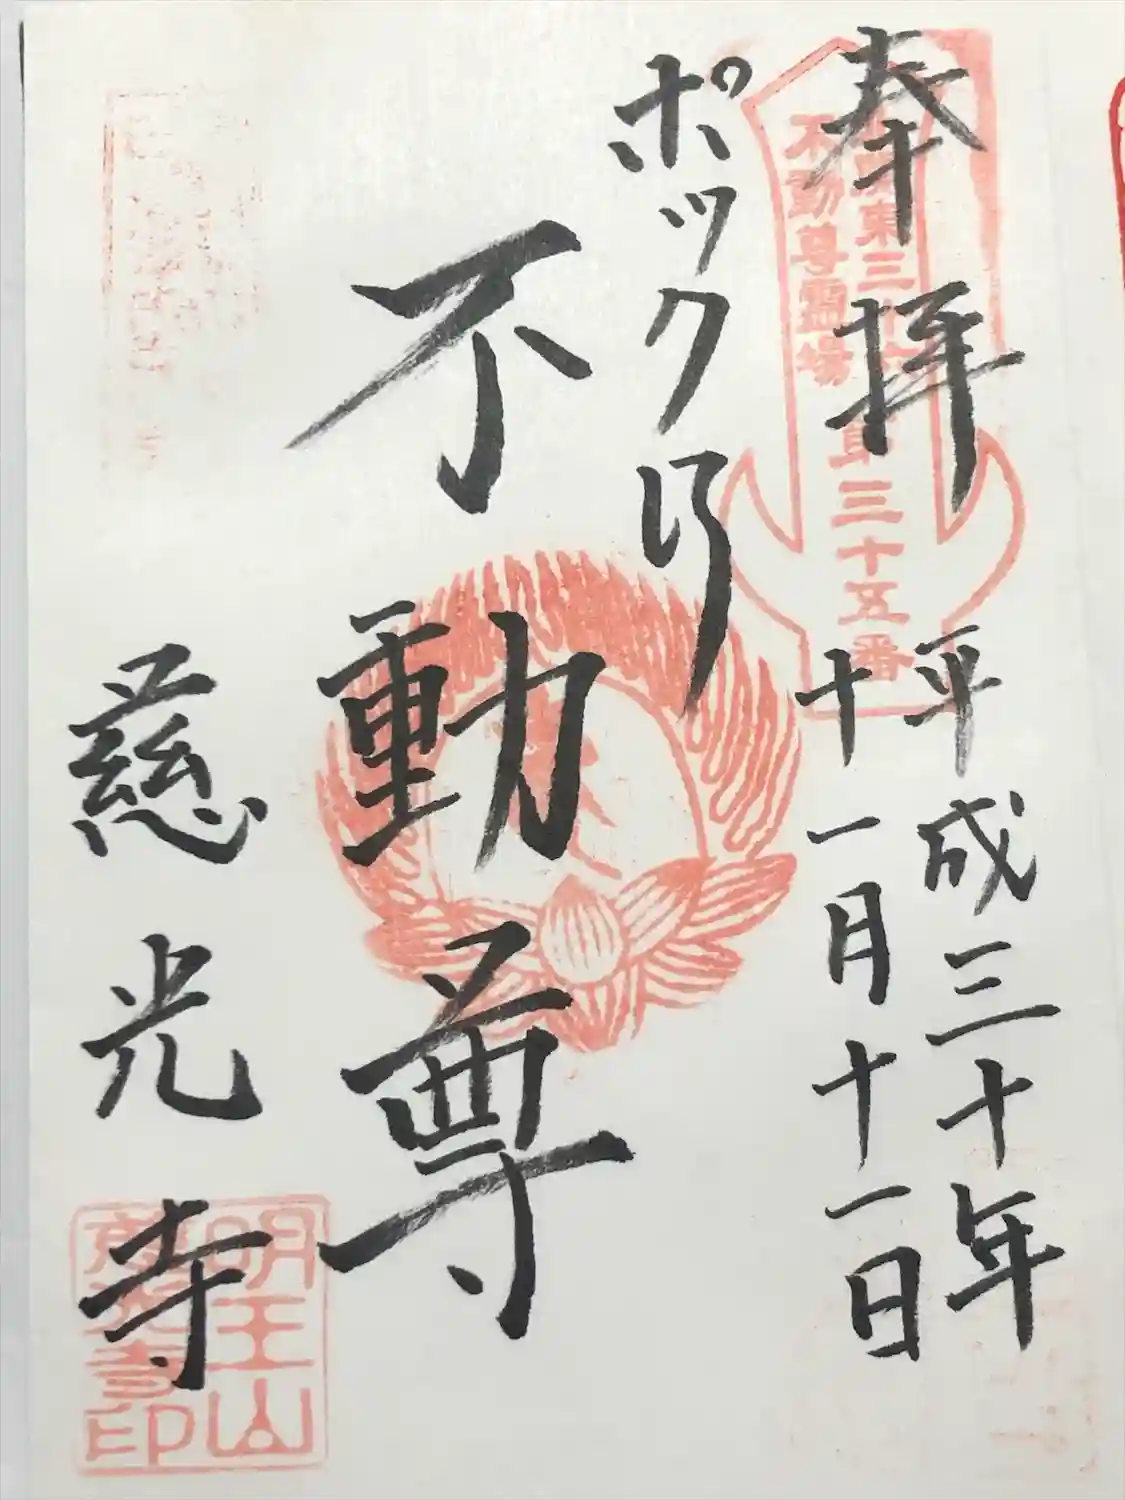 奉拝
平成三十年
十一月十一日
東三十六
不動尊霊場
第三十五番
ポックリ
不動尊
慈光寺
明王山
慈光寺印